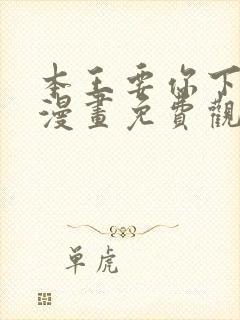 本王要你下
漫畫免費觀
单虎